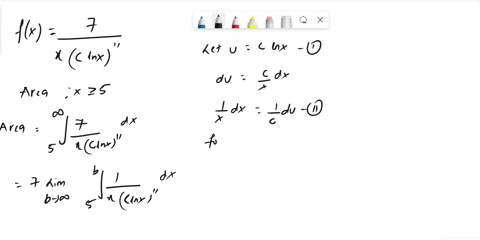 f(x) = 7 / x(c lnx)^11
Area : x ≥ 5
Area = ∫_5^∞ 7 / x(c lnx)^11 dx
= 7 Lim b→∞ ∫_5^b 1 / x(c lnx)^11 dx
Let u = c lnx - (I)
du = c/x dx
1/x dx = 1/c du - (II)
fo